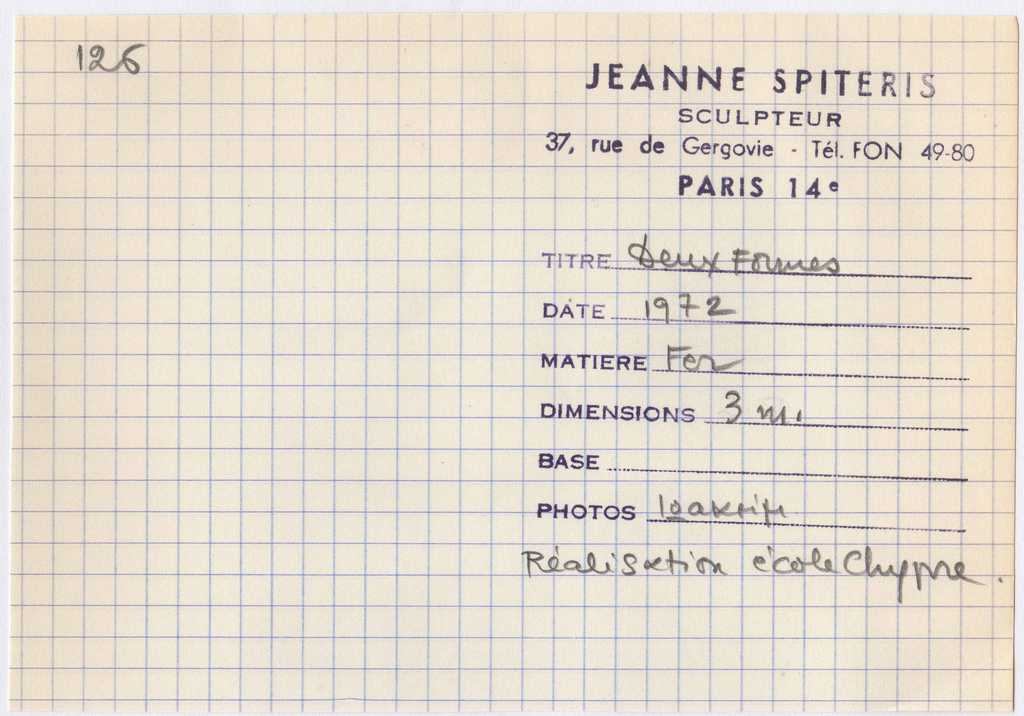 126
JEANNE SPITERIS
SCULPTEUR
37, rue de Gergovie - Tél. FON 49-80
PARIS 14e
TITRE Deux Formes
DATE 1972
MATIERE Fer
DIMENSIONS 3 m.
BASE
PHOTOS
Réalisation école Chypre.